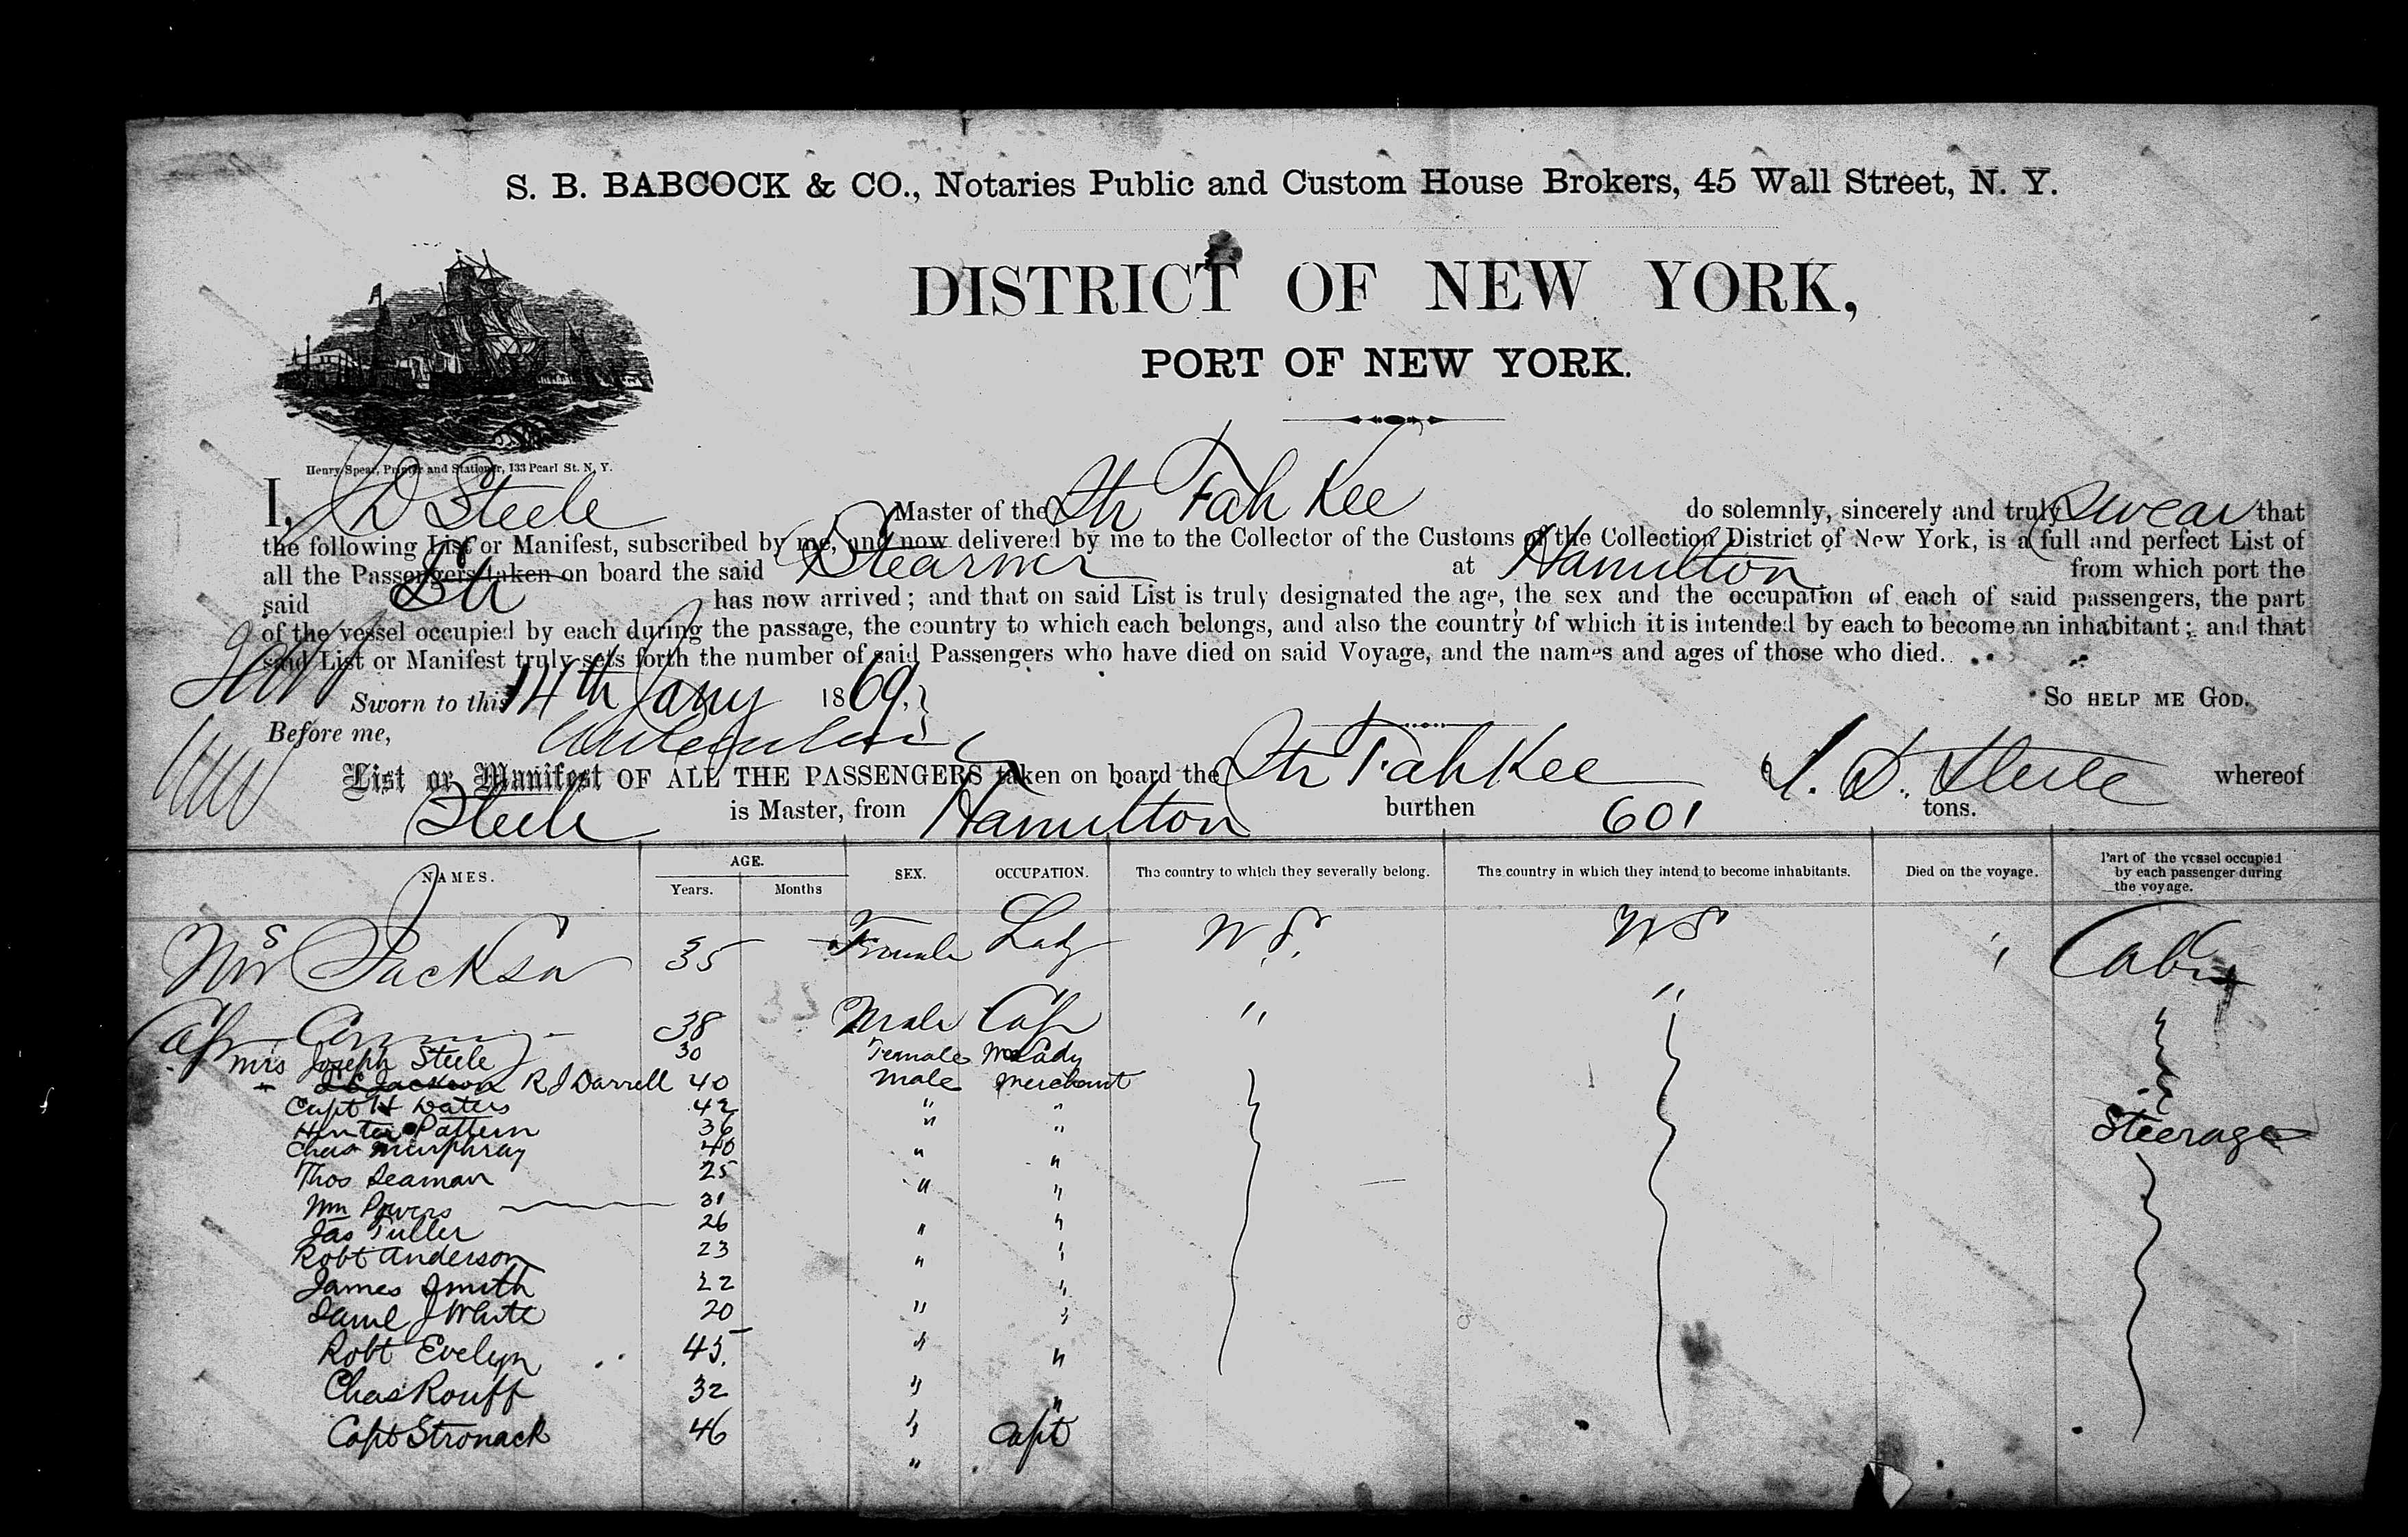 S. B. BABCOCK & CO., Notaries Public and Custom House Brokers, 45 Wall Street, N. Y.
DISTRICT OF NEW YORK,
PORT OF NEW YORK.
Henry Spear, Printer and Stationer, 133 Pearl St. N. Y.
I, D Steele Master of the Str Fah Kee do solemnly, sincerely and truly swear that
the following List or Manifest, subscribed by me, and now delivered by me to the Collector of the Customs of the Collection District of New York, is a full and perfect List of
all the Passengers taken on board the said Steamer at Hamilton from which port the
said Str has now arrived; and that on said List is truly designated the age, the sex and the occupation of each of said passengers, the part
of the vessel occupied by each during the passage, the country to which each belongs, and also the country of which it is intended by each to become an inhabitant; and that
said List or Manifest truly sets forth the number of said Passengers who have died on said Voyage, and the names and ages of those who died.
Sworn to this 14th Jany 1869. SO HELP ME GOD.
Before me,
List or Manifest OF ALL THE PASSENGERS taken on board the Str Fah Kee whereof
D. Steele
Steele is Master, from Hamilton burthen 601 tons.
NAMES. AGE. Years. Months SEX. OCCUPATION. The country to which they severally belong. The country in which they intend to become inhabitants. Died on the voyage. Part of the vessel occupied by each passenger during the voyage.
Mrs Jackson 35 Female Lady " Cabin
Capt 38 Male Capt " "
Mrs Joseph Steele 30 Female Lady
R J Darrell 40 Male Merchant
Capt H Waters 42 " "
Hunter Pattern 36 " " Steerage
Chas Murphray 40 " "
Thos Seaman 25 " "
Wm Powers 31 "
Jas Fuller 26 " "
Robt Anderson 23 " "
James Smith 22 "
Saml J White 20 " "
Robt Evelyn 45. " "
Chas Rouff 32 " "
Capt Stronack 46 " Capt
"